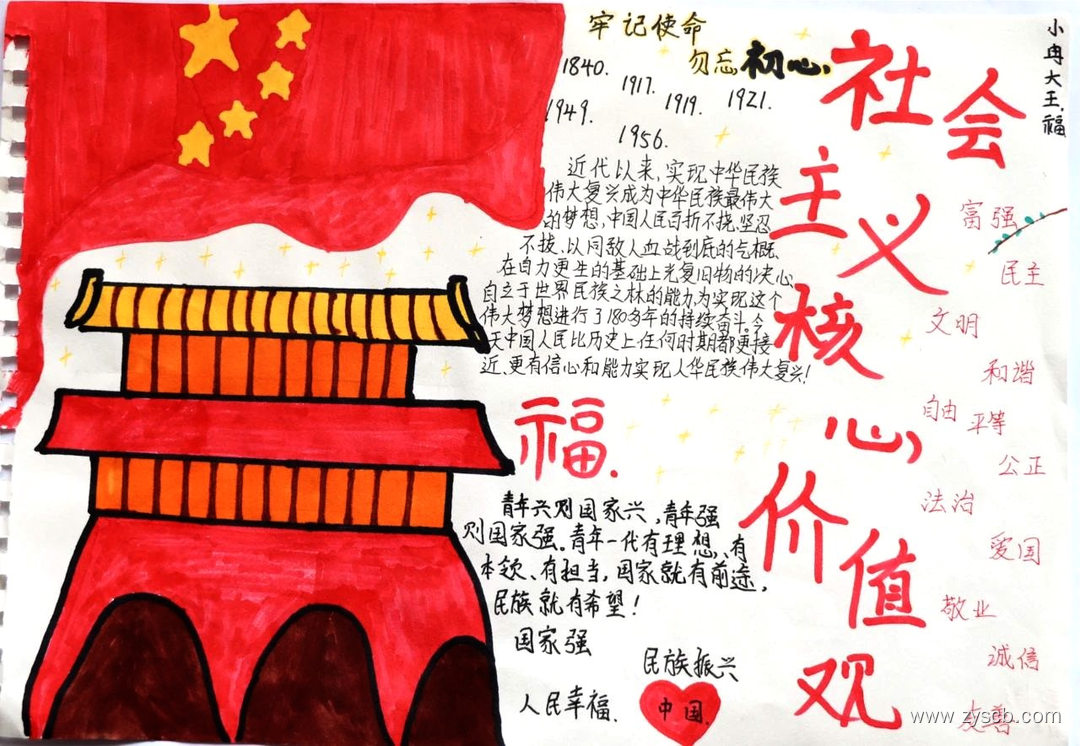 牢记使命
勿忘初心.
1840.
1917.
1919.
1921.
1949.
1956.
近代以来,实现中华民族
伟大复兴成为中华民族最伟大
的梦想,中国人民百折不挠,坚忍
不拔、以同敌人血战到底的气概、
在自力更生的基础上光复旧物的决心、
自立于世界民族之林的能力,为实现这个
伟大梦想进行了180多年的持续奋斗。今
天中国人民比历史上任何时期都更接
近、更有信心和能力实现人华民族伟大复兴!
福.
青年兴则国家兴,青年强
则国家强。青年一代有理想、有
本领、有担当,国家就有前途,
民族就有希望!
国家强
民族振兴
人民幸福.
中国.
社会
主义
核
心,
价值
观
小冉大王.福
富强
民主
文明
和谐
自由
平等
公正
法治
爱国
敬业
诚信
友善
www.zyscb.com